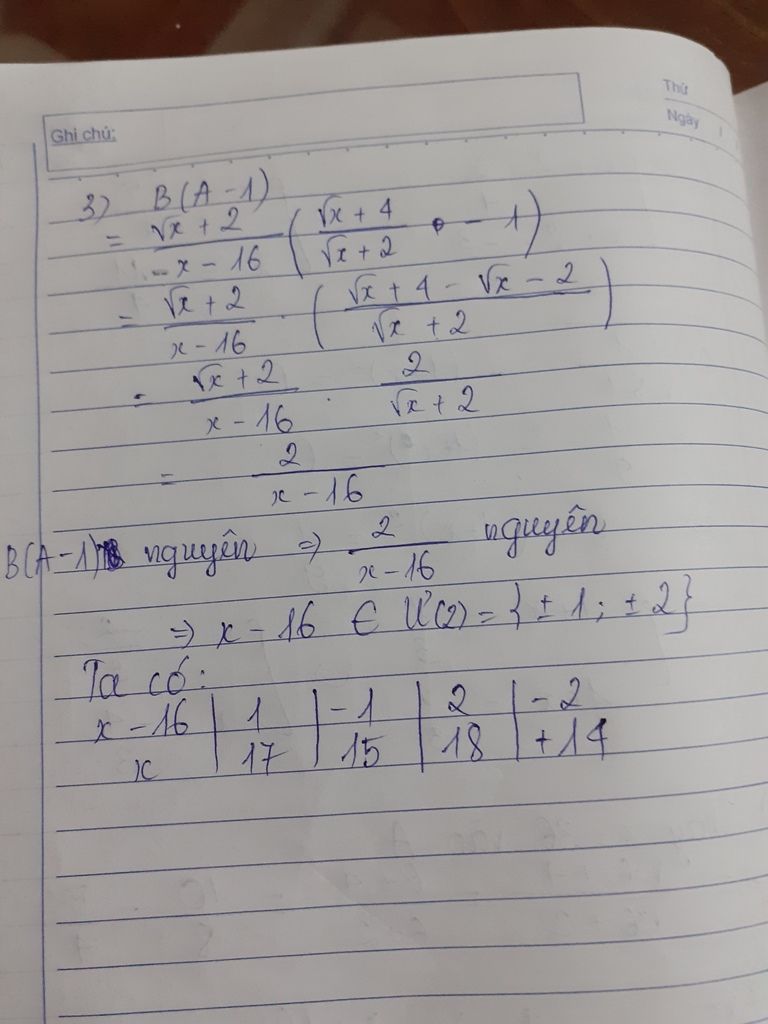 Thứ
Ghi chú:
Ngày
3) B(A - 1)
= (√x + 2)/(x - 16) ( (√x + 4)/(√x + 2) - 1 )
= (√x + 2)/(x - 16) · ( (√x + 4 - √x - 2)/(√x + 2) )
= (√x + 2)/(x - 16) · 2/(√x + 2)
= 2/(x - 16)
B(A - 1) nguyên => 2/(x - 16) nguyên
=> x - 16 ∈ Ư(2) = { ± 1 ; ± 2 }
Ta có:
x - 16 | 1 | - 1 | 2 | - 2
x | 17 | 15 | 18 | + 14